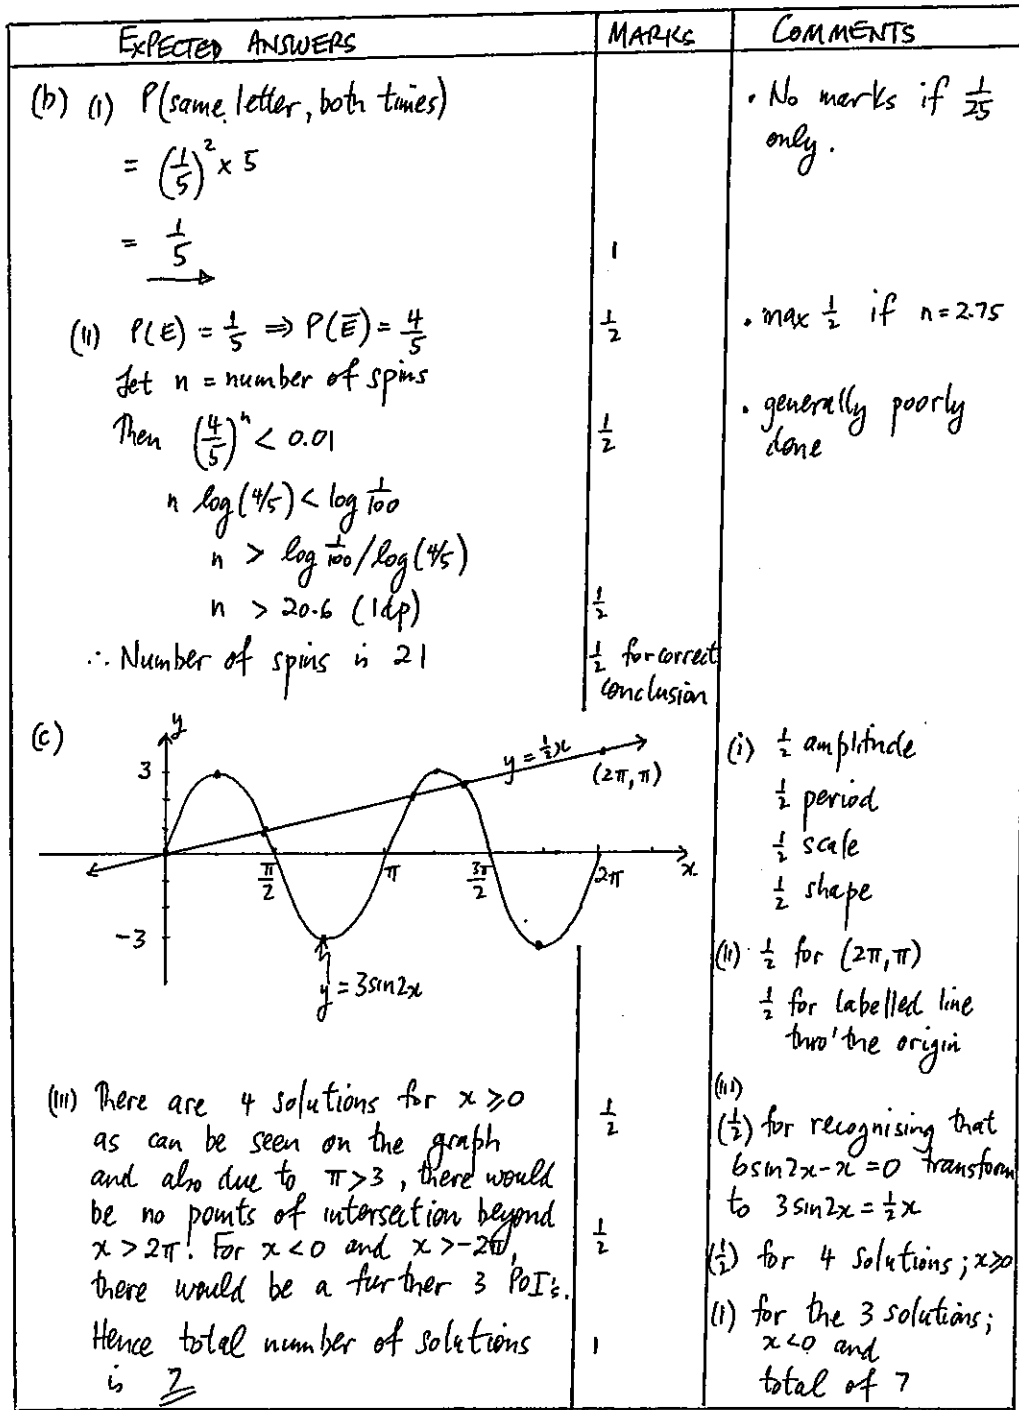 EXPECTED ANSWERS MARKS COMMENTS
(b) (i) P(same letter, both times)
= (1/5)² × 5
= 1/5
1
• No marks if 1/25
only.
(ii) P(E) = 1/5 ⇒ P(Ē) = 4/5
1/2
• max 1/2 if n = 2.75
Let n = number of spins
Then (4/5)ⁿ < 0.01
1/2
• generally poorly
done
n log(4/5) < log 1/100
n > log 1/100 / log(4/5)
n > 20.6 (1dp)
1/2
∴ Number of spins is 21
1/2 for correct
conclusion
(c)
y
3
y = 1/2 x
(2π, π)
π/2
π
3π/2
2π
x
-3
y = 3sin2x
(i) 1/2 amplitude
1/2 period
1/2 scale
1/2 shape
(ii) 1/2 for (2π, π)
1/2 for labelled line
thro' the origin
(iii) There are 4 solutions for x ⩾ 0
as can be seen on the graph
and also due to π > 3, there would
be no points of intersection beyond
x > 2π. For x < 0 and x > -2π,
there would be a further 3 POI's.
Hence total number of solutions
is 7
1/2
1/2
1
(iii)
(1/2) for recognising that
6sin2x - x = 0 transform
to 3sin2x = 1/2 x
(1/2) for 4 solutions; x⩾0
(1) for the 3 solutions;
x < 0 and
total of 7